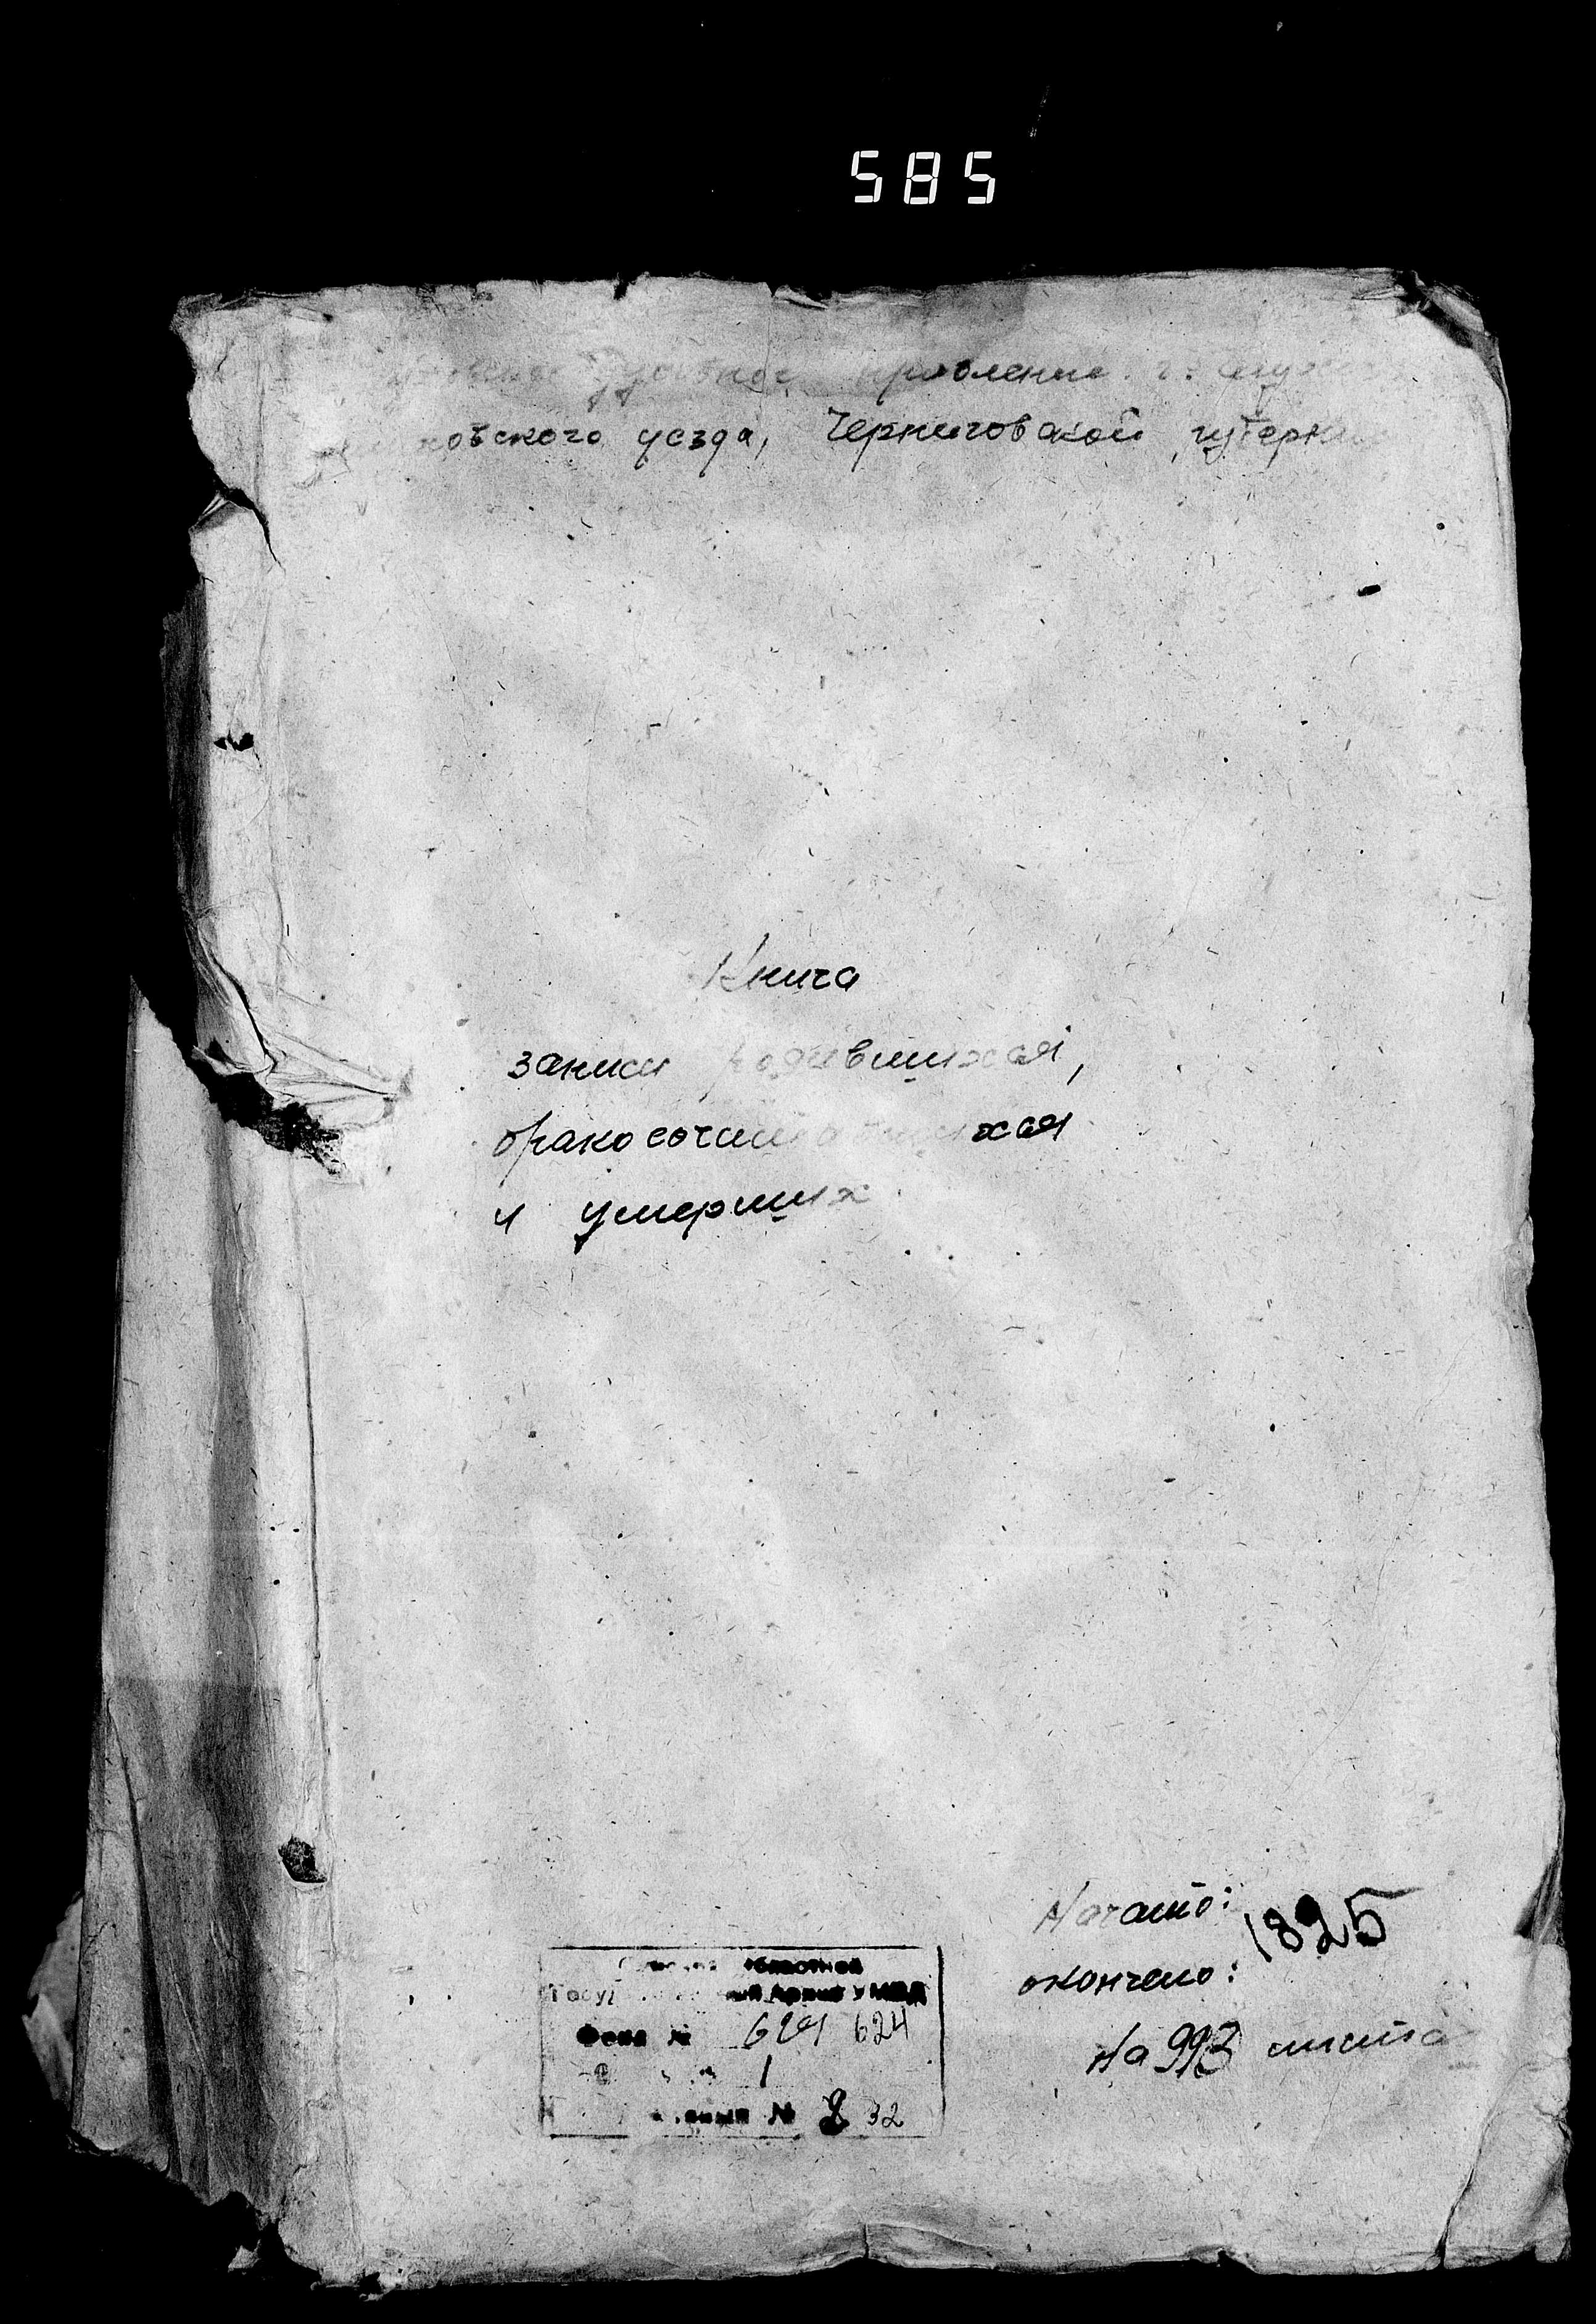 585
правление. г.
уезда, Черниговской губерни
Книга
записи родившихся,
бракосочетавшихся
и умерших
Начато:
1825
окончено:
На 993 листа
областной
Архив УМВД
Фонд № 624 624
1
№ 2 32